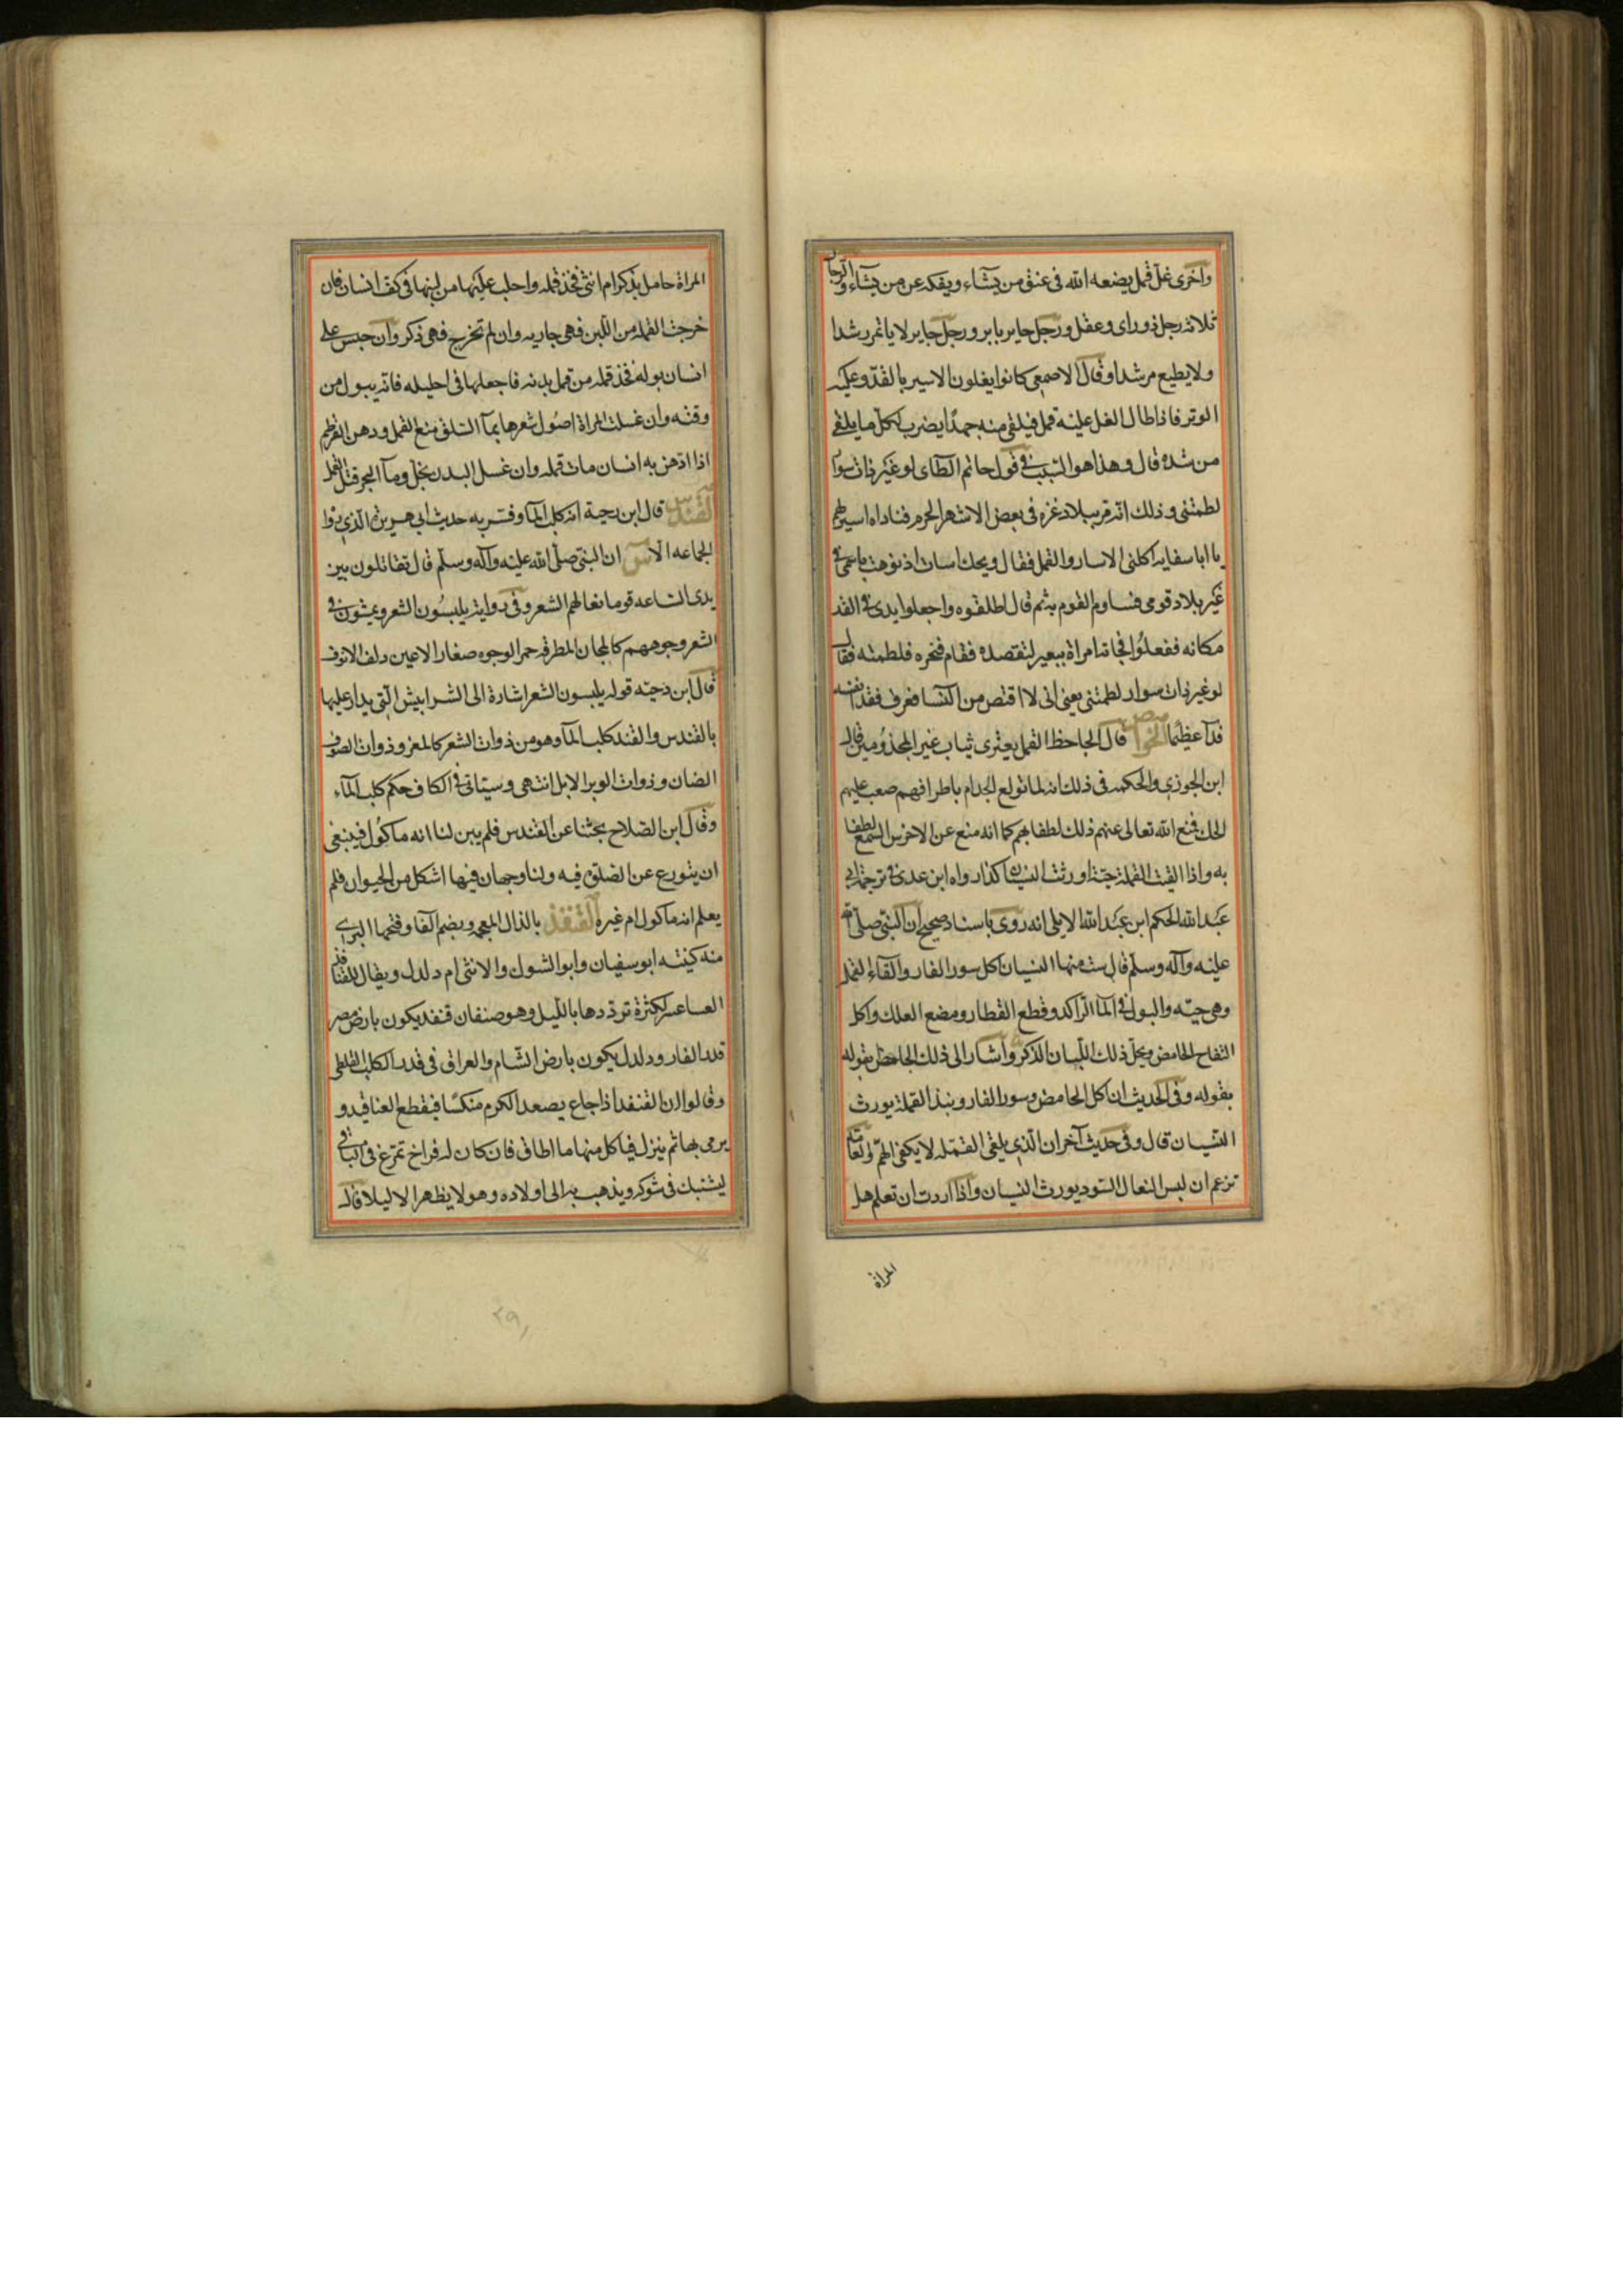 واخرى غل قمل يضعه الله فى عنق من يشاء ويفكه عن من يشاء والرجال
ثلاثه رجل ذو راى وعقل ورجل حاير باير ورجل حاير لا ياتمر رشدا
ولا يطيع مرشدا وقال الاصمعى كانوا يغلون الاسير بالقد وعليه
الوبر فاذا طال الغل عليه قمل فيلقى منه جهدًا يضرب لكل ما يلقى
من شده قال وهذا هو السبب فى قول حاتم الطاى لو غير ذات سوار
لطمتنى وذلك انه قرب بلاد غزه فى بعض الاشهر الحرم فناداه اسير لهم
يا ابا سفانه اكلنى الاسار والقمل فقال ويحك اسات اذ نوهت باسمى فى
غير بلاد قومى فساوم القوم به ثم قال اطلقوه واجعلوا يدى فى القد
مكانه ففعلوا فجاته امراة ببعير لتفصده فقام فنحره فلطمته فقال
لو غير ذات سوار لطمتنى يعنى انى لا اقتص من النسا فعرف ففدا نفسه
فدآ عظيما الخواص قال الجاحظ القمل يعترى ثياب غير المجذومين قال
ابن الجوزى والحكمه فى ذلك انه لما تولع الجذام باطرافهم صعب عليهم
الحك فمنع الله تعالى عنهم ذلك لطفا بهم كما انه منع عن الاخرس السمع لطفا
به واذا القيت القملة حية اورثت النسيان كذا رواه ابن عدى فى ترجمة ابى
عبد الله الحكم ابن عبد الله الايلى انه روى باسناد صحيح ان النبى صلى الله
عليه وآله وسلم قال ست منها النسيان اكل سور الفار والقاء القمله
وهى حيه والبول فى المآ الراكد وقطع القطار ومضع العلك واكل
التفاح الحامض ويحل ذلك اللبان الذكر واشار الى ذلك الجاحظ بقوله
بقوله وفى الحديث ان اكل الحامض وسور الفار ونبذ القملة يورث
النسيان قال وفى حديث آخر ان الذى يلقى القمله لا يكفى الهم والعامه
تزعم ان لبس النعال السود يورث النسيان واذا اردت ان تعلم هل
المراة
المراة حامل بذكر ام انثى فخذ قمله واحلب عليها من لبنها فى كف انسان فان
خرجت القمله من اللبن فهى جاريه وان لم تخرج فهى ذكر وان حبس على
انسان بوله فخذ قمله من قمل بدنه فاجعلها فى احليله فانه يبول من
وقته وان غسلت المراة اصول شعرها بمآ السلق منع القمل ودهن القرطم
اذا ادهن به انسان مات قمله وان غسل البدن بخل ومآ البحر قتل القمل
القندس قال ابن دحية انه كلب المآ وفسر به حديث ابى هريرة الذى رواه
الجماعه الا س ان النبى صلى الله عليه وآله وسلم قال تقاتلون بين
يدى الساعه قوما نعالهم الشعر وفى روايه يلبسون الشعر ويمشون فى
الشعر وجوههم كالمجان المطرقه حمر الوجوه صغار الاعين دلف الانوف
قال ابن دحيه قوله يلبسون الشعر اشارة الى الشرابيش التى يدار عليها
بالقندس والقند كلب المآ وهو من ذوات الشعر كالمعز وذوات الصوف
الضان وذوات الوبر الابل انتهى وسياتى فى الكاف حكم كلب المآء
وقال ابن الصلاح بحثنا عن القندس فلم يبن لنا انه ماكول فينبغى
ان يتورع عن الصلوة فيه ولنا وجهان فيها اشكل من الحيوان فلم
يعلم انه ماكول ام غيره القنفذ بالذال المعجمه وبضم الفا وفتحها البرى
منه كنيته ابو سفيان وابو الشوك والانثى ام دلدل ويقال للقنافذ
العساعس لكثرة ترددها بالليل وهو صنفان قنفد يكون بارض مصر
قدر الفار ودلدل يكون بارض الشام والعراق فى قدر الكلب القلطى
وقالوا ان القنفد اذا جاع يصعد الكرم منكسا فيقطع العناقيد و
يرمى بها ثم ينزل فياكل منها ما اطاق فان كان له فراخ تمرغ فى الباقى
ليشتبك فى شوكه ويذهب به الى اولاده وهو لا يظهر الا ليلا قال
٢٩